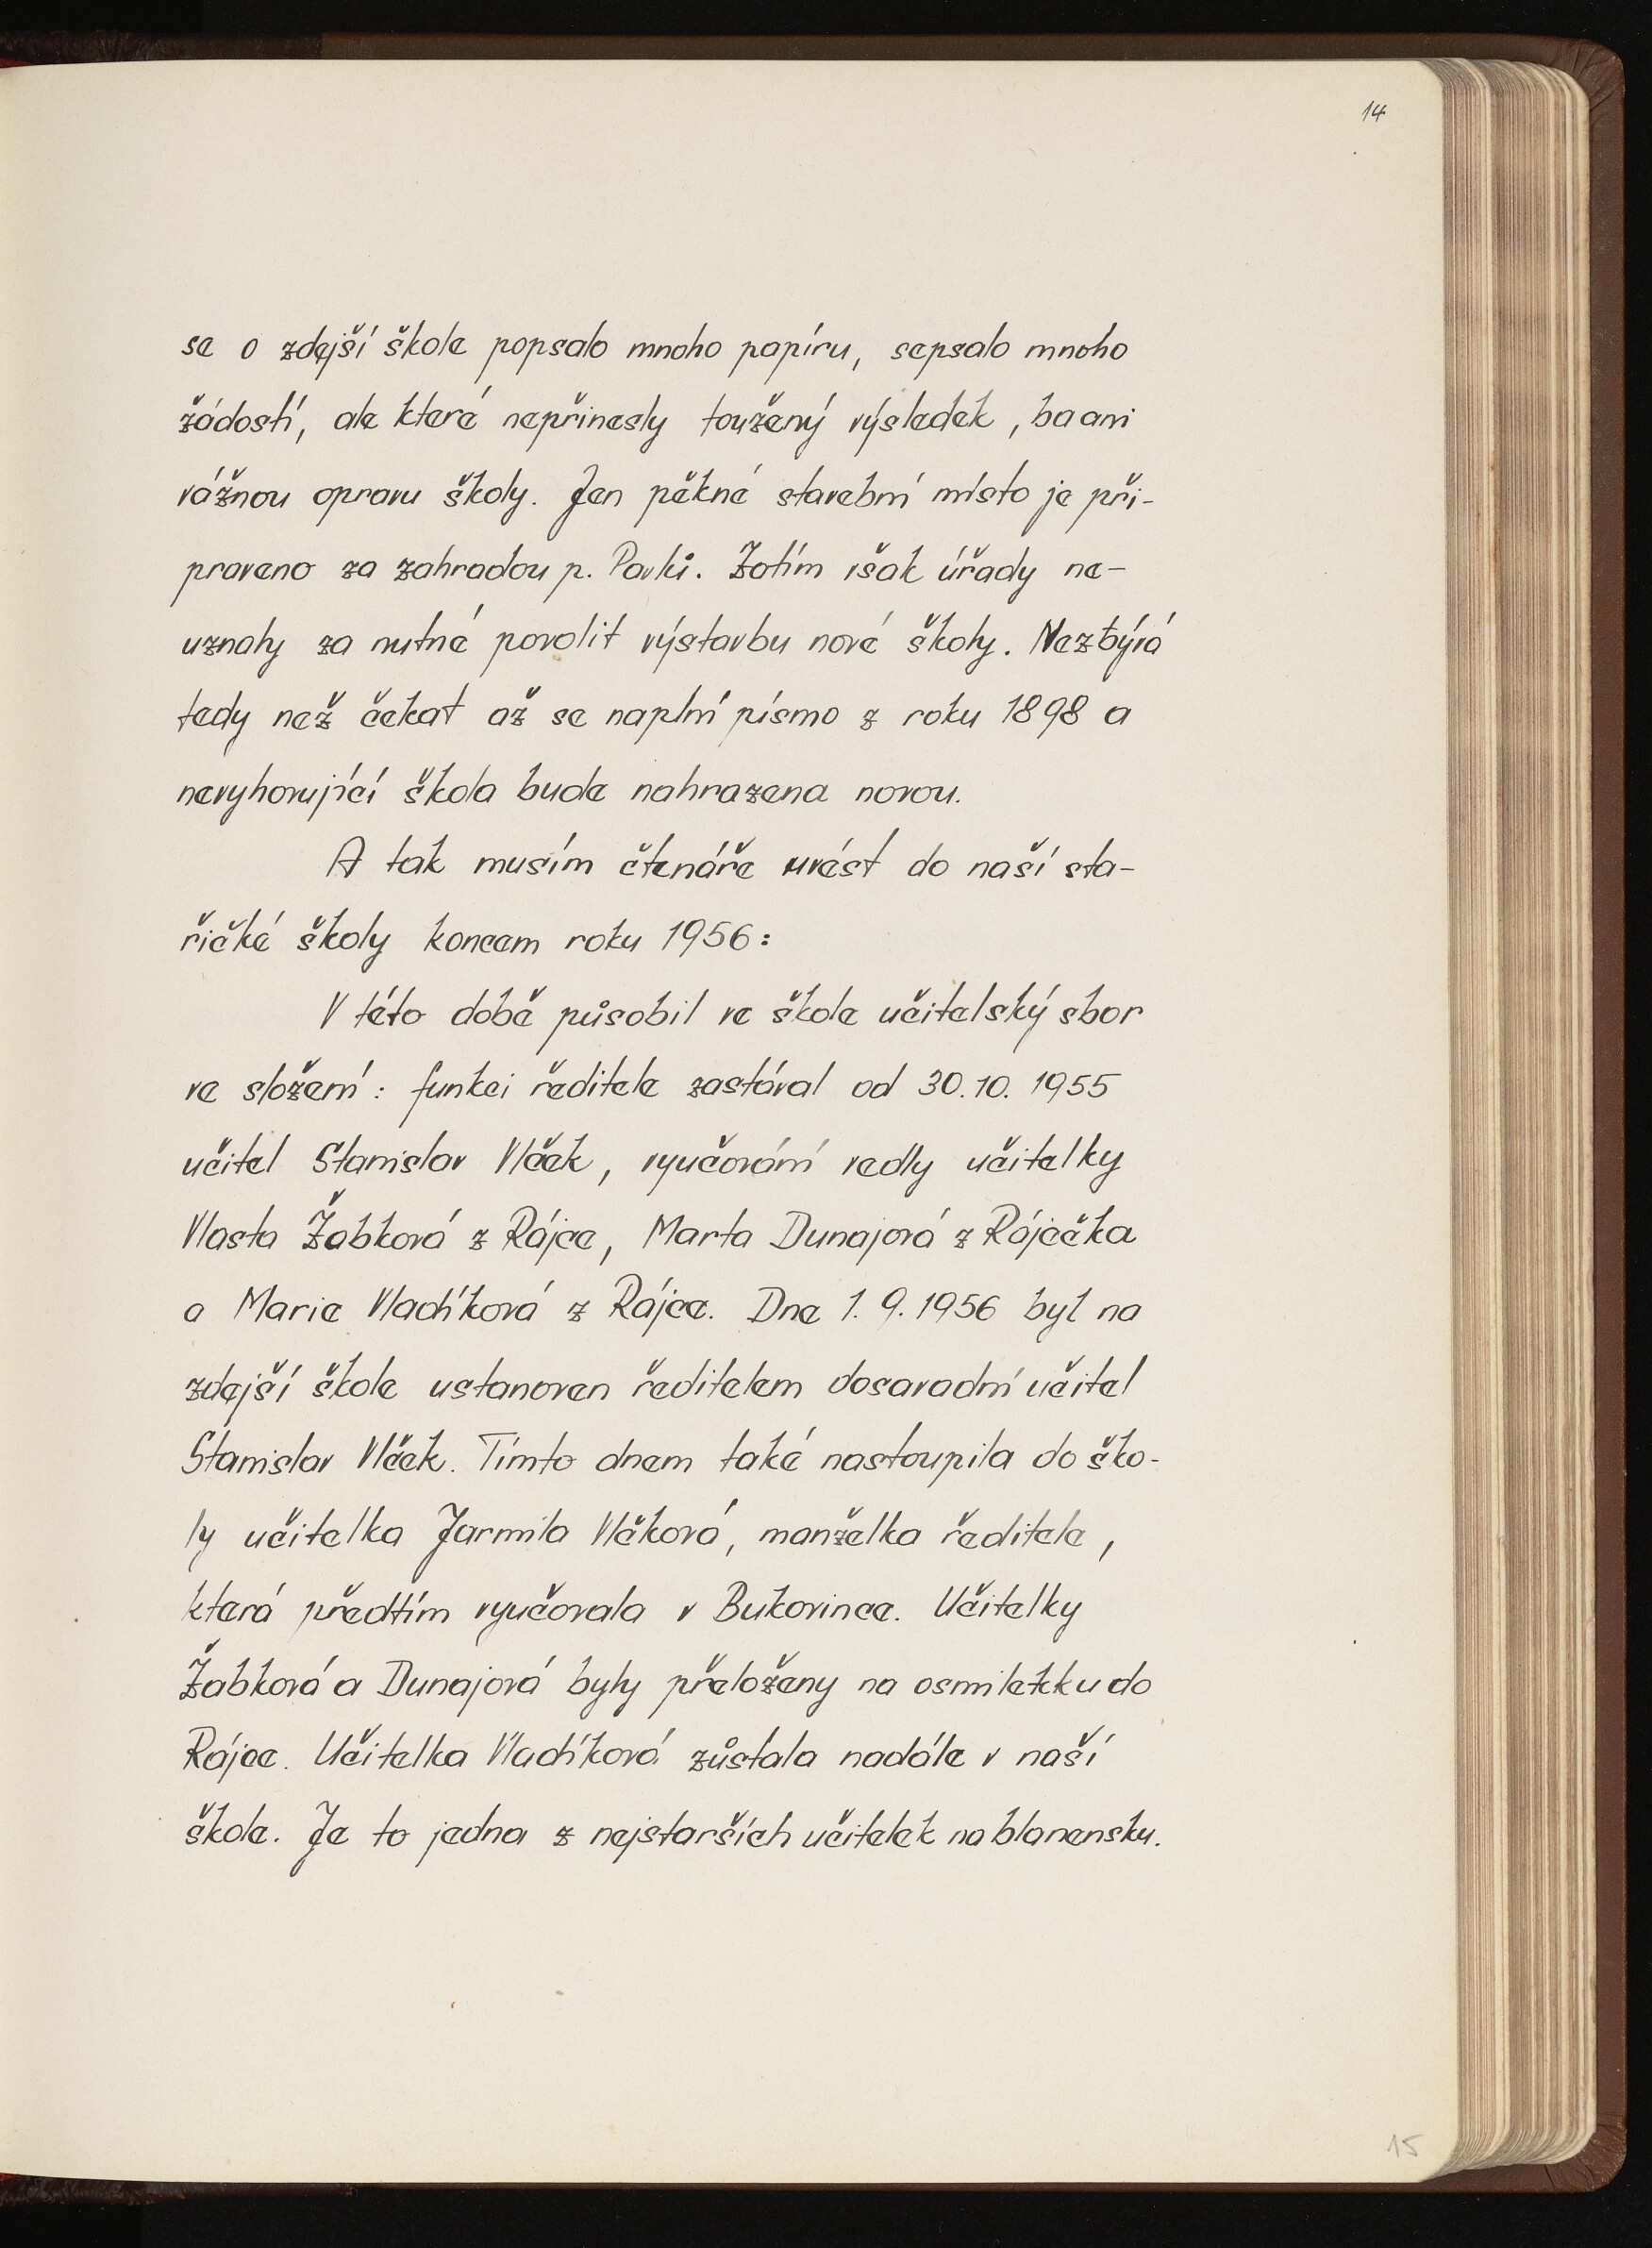 14
se o zdejší škole popsalo mnoho papíru, sepsalo mnoho
žádostí, ale které nepřinesly toužený výsledek, ba ani
vážnou opravu školy. Jen pěkné stavební místo je při-
praveno za zahradou p. Pavlů. Zatím však úřady ne-
uznaly za nutné povolit výstavbu nové školy. Nezbývá
tedy než čekat až se naplní písmo z roku 1898 a
nevyhovující škola bude nahrazena novou.
A tak musím čtenáře uvést do naší sta-
řičké školy koncem roku 1956:
V této době působil ve škole učitelský sbor
ve složení: funkci ředitele zastával od 30.10. 1955
učitel Stanislav Vlček, vyučování vedly učitelky
Vlasta Žabková z Rájce, Marta Dunajová z Ráječka
a Marie Vladíková z Rájce. Dne 1. 9. 1956 byl na
zdejší škole ustanoven ředitelem dosavadní učitel
Stanislav Vlček. Tímto dnem také nastoupila do ško-
ly učitelka Jarmila Vlčková, manželka ředitele,
která předtím vyučovala v Bukovince. Učitelky
Žabková a Dunajová byly přeloženy na osmiletku do
Rájce. Učitelka Vladíková zůstala nadále v naší
škole. Je to jedna z nejstarších učitelek na blanensku.
15